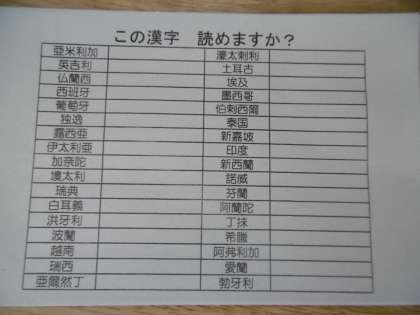 この漢字 読めますか?
亜米利加 濠太剌利
英吉利 土耳古
仏蘭西 埃及
西班牙 墨西哥
葡萄牙 伯剌西爾
独逸 泰国
露西亜 新嘉坡
伊太利亜 印度
加奈陀 新西蘭
墺太利 諾威
瑞典 芬蘭
白耳義 阿蘭陀
洪牙利 丁抹
波蘭 希臘
越南 阿弗利加
瑞西 愛蘭
亜爾然丁 勃牙利